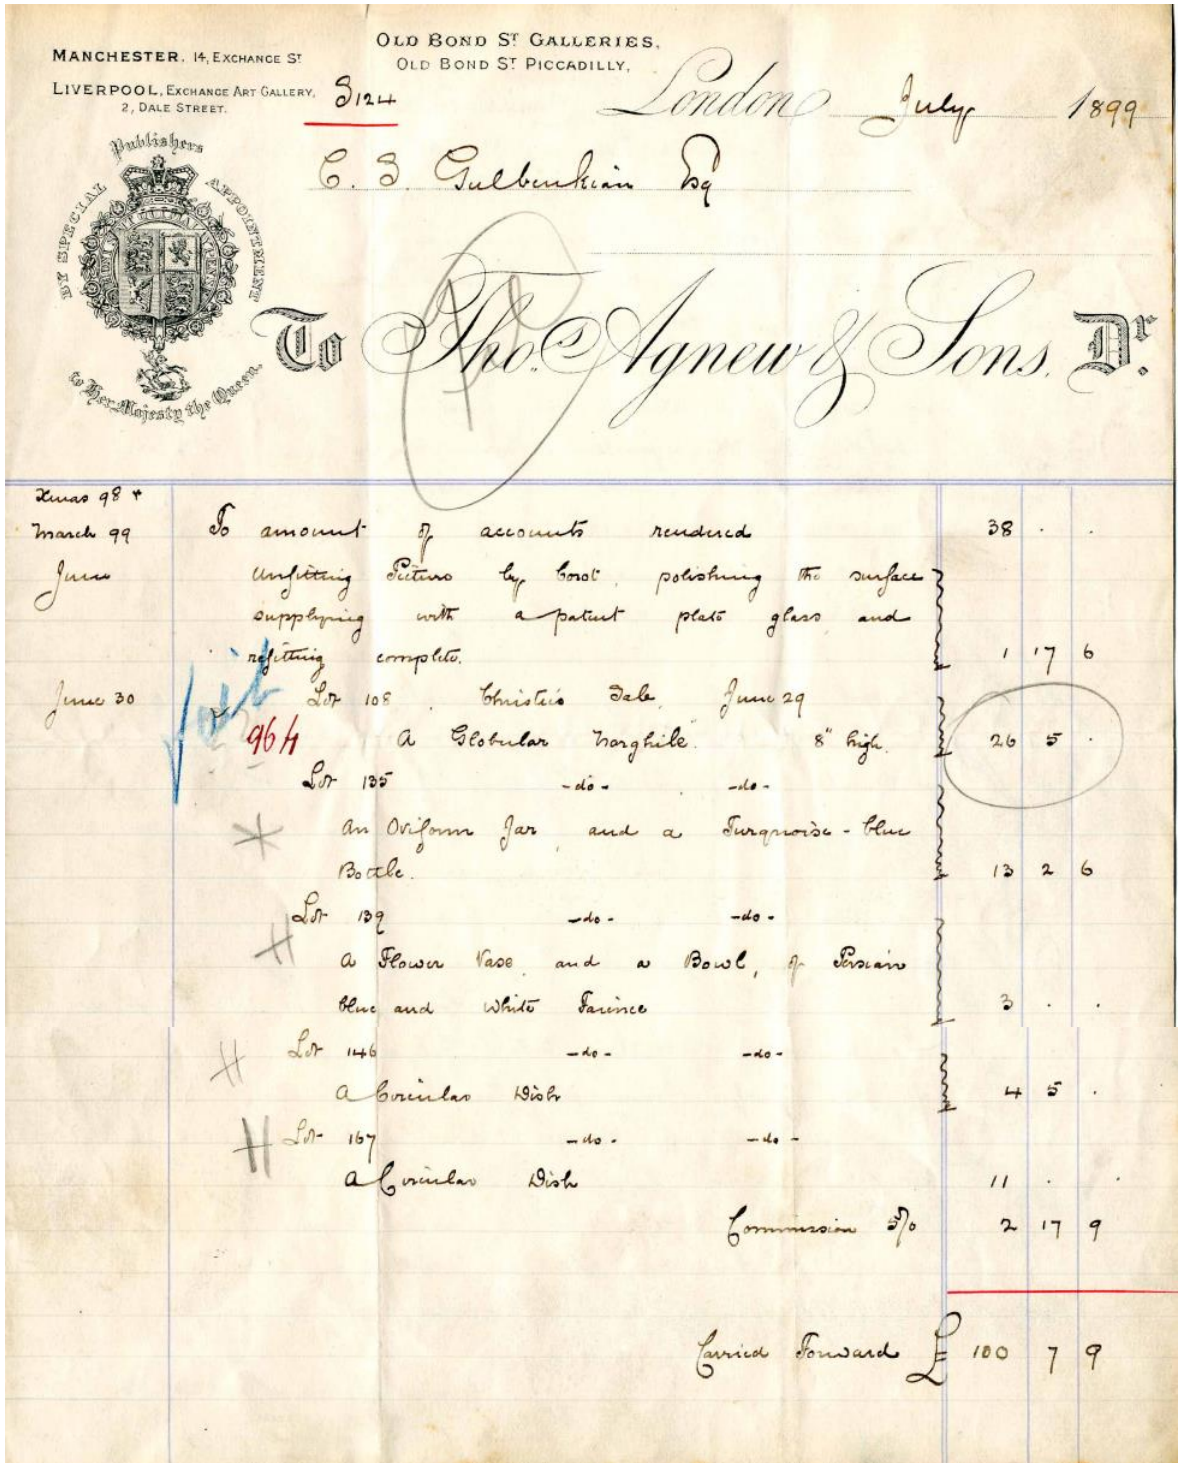 OLD BOND ST GALLERIES,
OLD BOND ST PICCADILLY,
MANCHESTER, 14, EXCHANGE ST
LIVERPOOL, EXCHANGE ART GALLERY,
2, DALE STREET.
S124
London July 1899
Publishers
BY SPECIAL APPOINTMENT
to Her Majesty the Queen.
C. S. Gulbenkian Esq
To Thos. Agnew & Sons, Dr.
Xmas 98 +
March 99 To amount of accounts rendered 38 . .
June Unfitting Picture by Corot, polishing the surface
supplying with a patent plate glass and
refitting complete. 1 17 6
June 30 Lot 108, Christie's Sale, June 29
964 A Globular Narghile 8" high. 26 5 .
Lot 135 -do- -do-
An Oviform Jar, and a Turquoise-blue
Bottle. 13 2 6
Lot 139 -do- -do-
A Flower Vase and a Bowl, of Persian
blue and white Faience 3 . .
Lot 146 -do- -do-
A Circular Dish 4 5 .
Lot 167 -do- -do-
A Circular Dish 11 . .
Commission 5% 2 17 9
Carried Forward £ 100 7 9